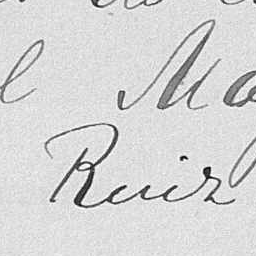 l Ma
Ruiz